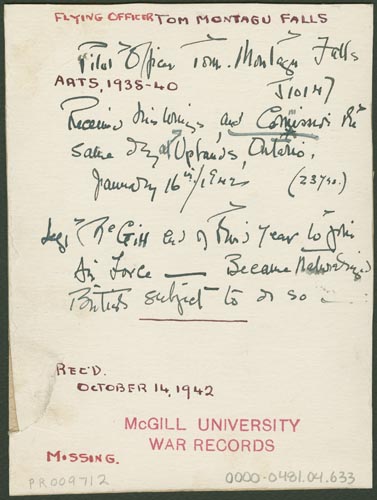 FLYING OFFICER TOM MONTAGU FALLS
Pilot Officer Tom Montagu Falls
ARTS, 1938-40
J10147
Received his wings, and Commission the
same day at Uplands, Ontario,
January 16th/1942 (23 yrs.)
McGill end of third year to join
Air Force — Became Naturalized
British subject to do so —
REC'D.
OCTOBER 14, 1942
McGILL UNIVERSITY
WAR RECORDS
MISSING.
PR009712
0000-0481.04.633